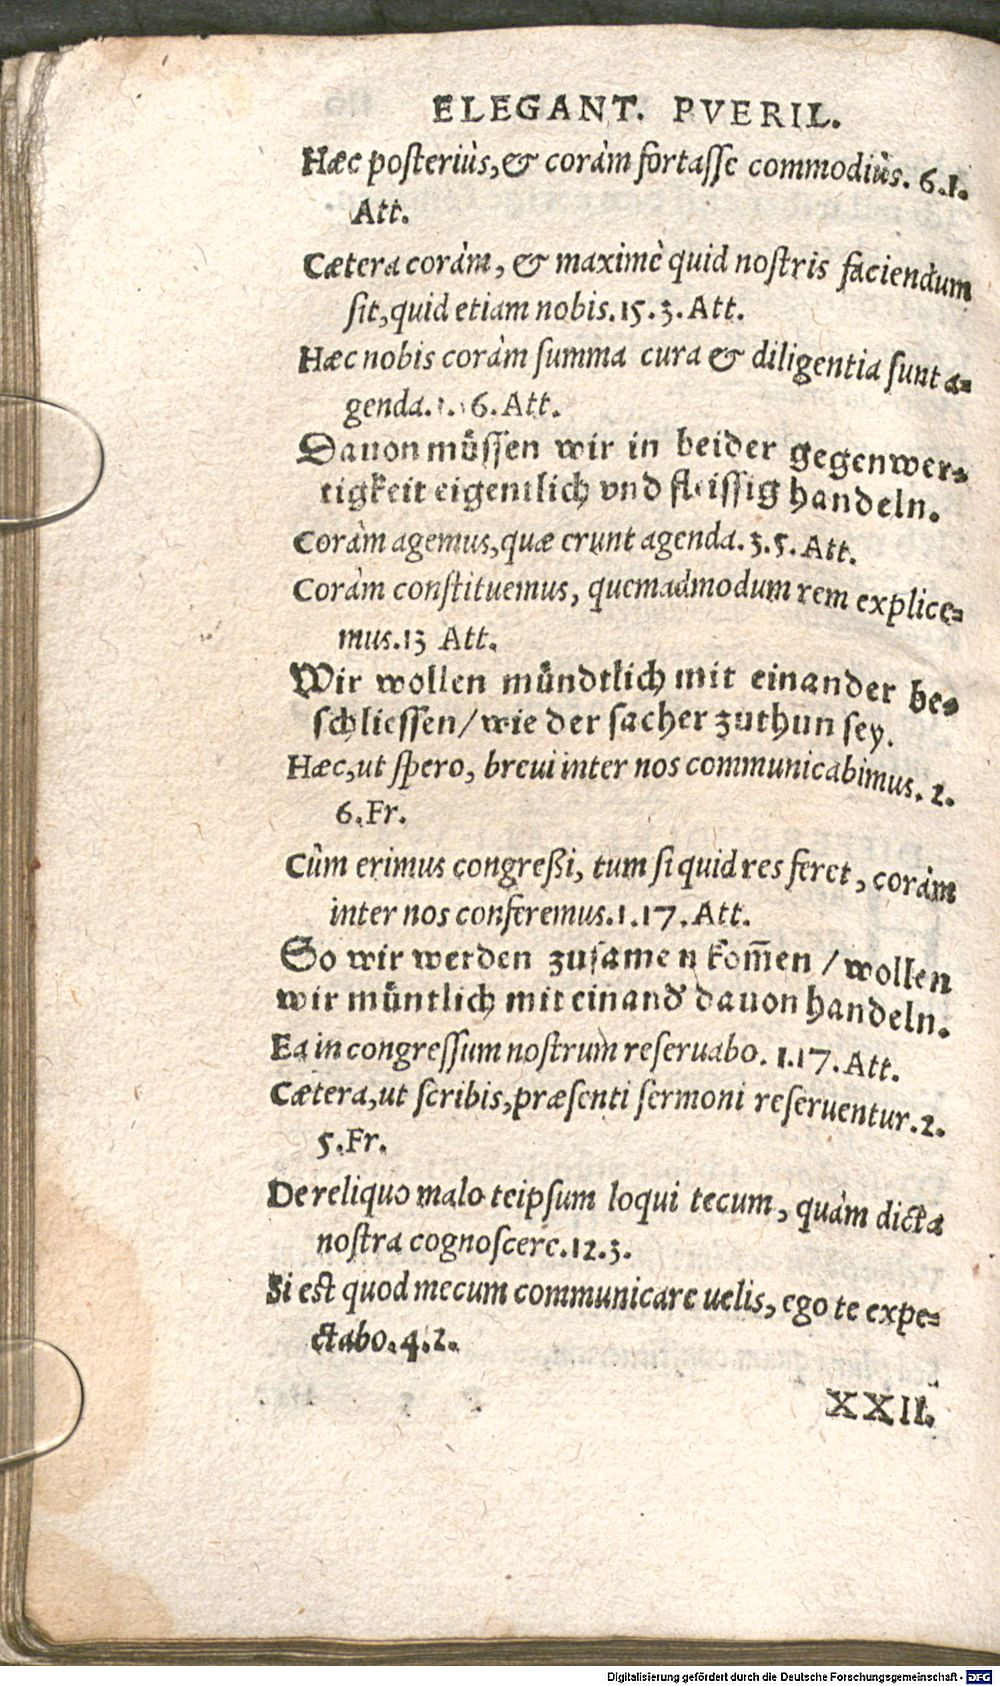 ELEGANT. PVERIL.
Hæc poſteriùs, & coràm fortaſſe commodiùs. 6.1.
Att.
Cætera coràm, & maximè quid noſtris faciendum
ſit, quid etiam nobis. 15. 3. Att.
Hæc nobis coràm ſumma cura & diligentia ſunt a-
genda. 1. 16. Att.
Dauon müſſen wir in beider gegenwer-
tigkeit eigentlich vnd fleiſſig handeln.
Coràm agemus, quæ erunt agenda. 3. 5. Att.
Coràm conſtituemus, quemadmodum rem explice-
mus. 13 Att.
Wir wollen mündtlich mit einander be-
ſchlieſſen / wie der ſacher zuthun ſey.
Hæc, ut ſpero, breui inter nos communicabimus. 2.
6. Fr.
Cùm erimus congreßi, tum ſi quid res feret, coràm
inter nos conferemus. 1. 17. Att.
So wir werden zuſamen kom̄en / wollen
wir müntlich mit einand' dauon handeln.
Ea in congreſſum noſtrum reſeruabo. 1. 17. Att.
Cætera, ut ſcribis, præſenti ſermoni reſeruentur. 2.
5. Fr.
De reliquo malo teipſum loqui tecum, quàm dicta
noſtra cognoſcere. 12. 3.
Si eſt quod mecum communicare uelis, ego te expe-
ctabo. 4. 2.
XXII.
Digitalisierung gefördert durch die Deutsche Forschungsgemeinschaft - DFG